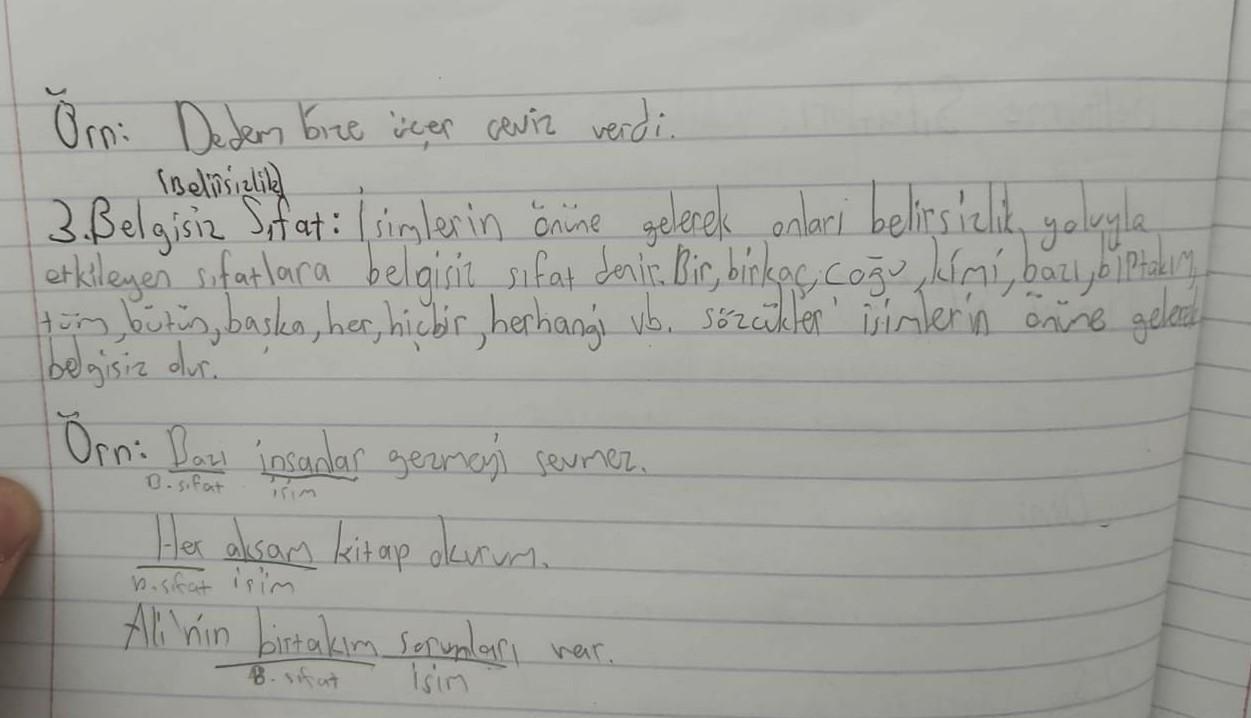 Örn: Dedem bize üçer ceviz verdi.
(Belirsizlik)
3.Belgisiz Sıfat: İsimlerin önüne gelerek onları belirsizlik yoluyla
etkileyen sıfatlara belgisiz sıfat denir. Bir, birkaç, çoğu, kimi, bazı, birtakım,
tüm, bütün, başka, her, hiçbir, herhangi vb. sözcükler isimlerin önüne gelerek
belgisiz olur.
Örn: Bazı insanlar gezmeyi sevmez.
B. sıfat isim
Her akşam kitap okurum.
B. sıfat isim
Ali'nin birtakım sorunları var.
B. sıfat isim